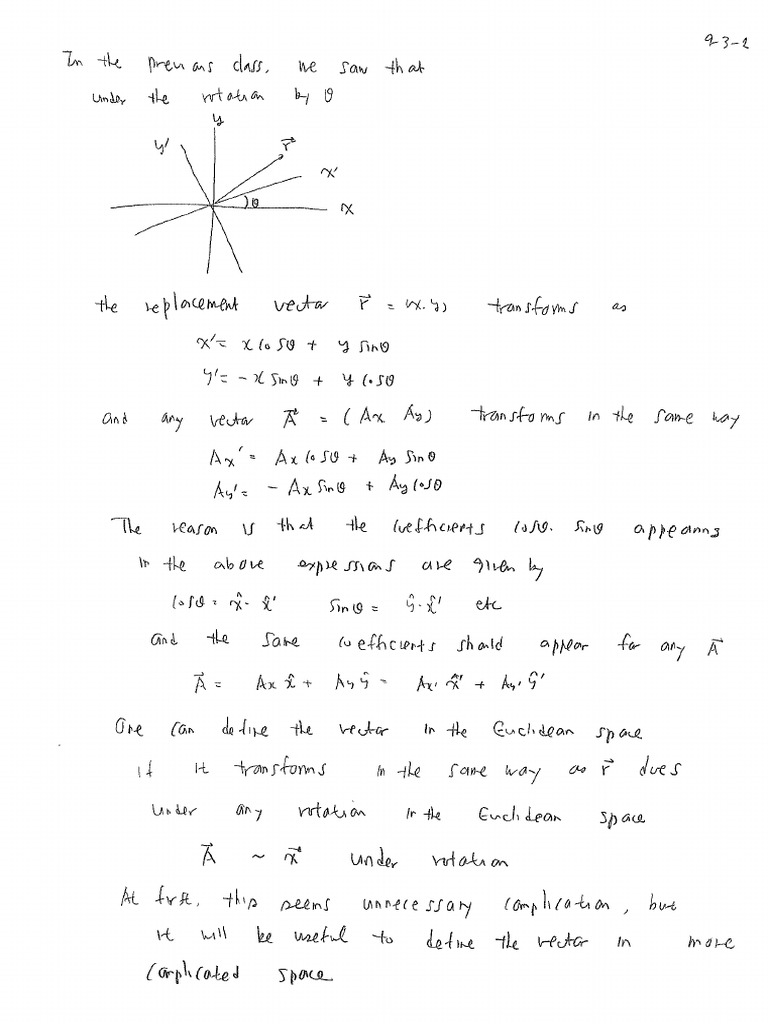 93-2
In the previous class, we saw that
under the rotation by θ
y
y'
r⃗
x'
θ
x
the replacement vector r⃗ = (x, y) transforms as
x' = x cosθ + y sinθ
y' = -x sinθ + y cosθ
and any vector A⃗ = (Ax Ay) transforms in the same way
Ax' = Ax cosθ + Ay sinθ
Ay' = - Ax sinθ + Ay cosθ
The reason is that the coefficients cosθ. sinθ appearing
in the above expressions are given by
cosθ = x̂·x̂' sinθ = ŷ·x̂' etc
and the same coefficients should appear for any A⃗
A⃗ = Ax x̂ + Ay ŷ = Ax' x̂' + Ay' ŷ'
One can define the vector in the Euclidean space
if it transforms in the same way as r⃗ does
under any rotation in the Euclidean space
A⃗ ~ x⃗ under rotation
At first, this seems unnecessary complication, but
it will be useful to define the vector in more
complicated space